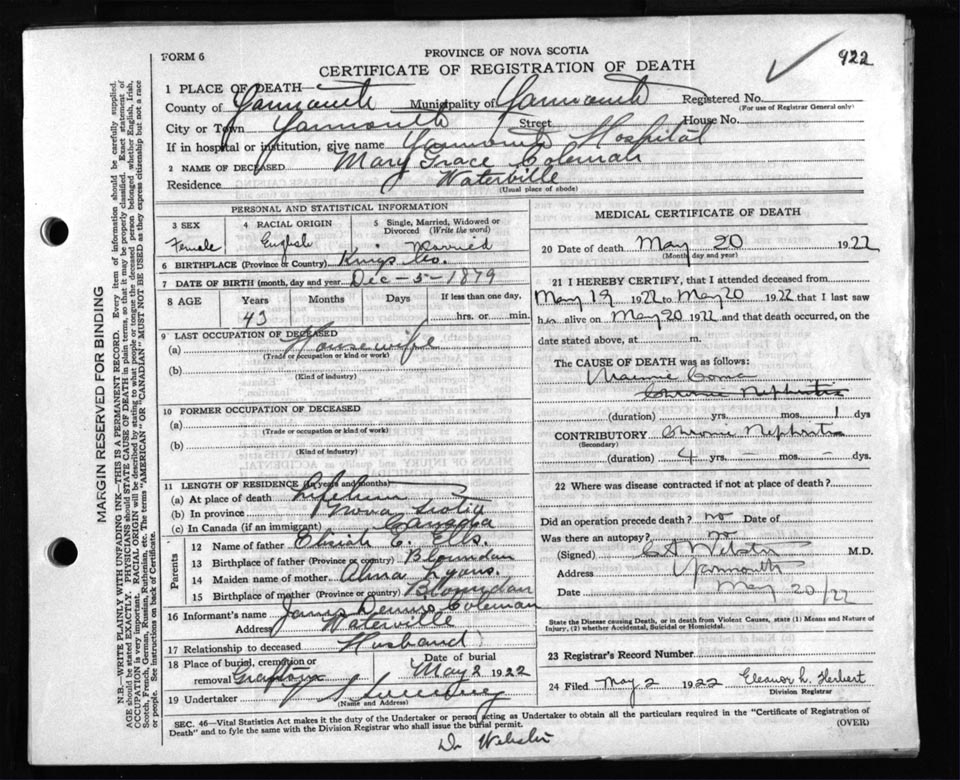 922
FORM 6
PROVINCE OF NOVA SCOTIA
CERTIFICATE OF REGISTRATION OF DEATH
1 PLACE OF DEATH—
County of Yarmouth Municipality of Yarmouth Registered No.
(For use of Registrar General only)
City or Town Yarmouth Street House No.
If in hospital or institution, give name Yarmouth Hospital
2 NAME OF DECEASED Mary Grace Coleman
Residence Waterville
(Usual place of abode)
MARGIN RESERVED FOR BINDING
N.B.—WRITE PLAINLY WITH UNFADING INK—THIS IS A PERMANENT RECORD. Every item of information should be carefully supplied.
AGE should be stated EXACTLY. PHYSICIANS should STATE CAUSE OF DEATH in plain terms, so that it may be properly classified. Exact statement of
OCCUPATION is very important. RACIAL ORIGIN will be described by stating to what people or tongue the deceased person belonged whether English, Irish,
Scotch, French, German, Russian, Ruthenian, etc. The terms "AMERICAN" OR "CANADIAN" MUST NOT BE USED as they express citizenship but not a race
or people. See instructions on back of Certificate.
PERSONAL AND STATISTICAL INFORMATION
3 SEX
Female
4 RACIAL ORIGIN
English
5 Single, Married, Widowed or
Divorced (Write the word)
Married
6 BIRTHPLACE (Province or Country) Kings Co.
7 DATE OF BIRTH (month, day and year) Dec - 5 - 1879
8 AGE Years Months Days If less than one day,
43 hrs. or min.
9 LAST OCCUPATION OF DECEASED
(a) Housewife
(Trade or occupation or kind of work)
(b)
(Kind of industry)
10 FORMER OCCUPATION OF DECEASED
(a)
(Trade or occupation or kind of work)
(b)
(Kind of industry)
11 LENGTH OF RESIDENCE (in years and months)
(a) At place of death
(b) In province Nova Scotia
(c) In Canada (if an immigrant) Canada
Parents
12 Name of father E. Ells.
13 Birthplace of father (Province or country)
14 Maiden name of mother Alma Lyons.
15 Birthplace of mother (Province or country)
16 Informant's name James Dennis Coleman
Address Waterville
17 Relationship to deceased Husband
18 Place of burial, cremation or
removal Grafton
Date of burial
May 2 1922
19 Undertaker
(Name and Address)
MEDICAL CERTIFICATE OF DEATH
20 Date of death May 20 1922
(Month, day and year)
21 I HEREBY CERTIFY, that I attended deceased from
May 19 1922 to May 20 1922 that I last saw
her alive on May 20 1922 and that death occurred, on the
date stated above, at m.
The CAUSE OF DEATH was as follows:
Uraemic Coma
Chronic Nephritis
(duration) yrs. mos. 1 dys
CONTRIBUTORY Chronic Nephritis
(Secondary)
(duration) 4 yrs. - mos. - dys.
22 Where was disease contracted if not at place of death?
Did an operation precede death? no Date of
Was there an autopsy? no
(Signed) C A Webster M.D.
Address Yarmouth
Date May 20/22
State the Disease causing Death, or in death from Violent Causes, state (1) Means and Nature of
Injury, (2) whether Accidental, Suicidal or Homicidal.
23 Registrar's Record Number
24 Filed May 2 1922 Eleanor L. Herbert
Division Registrar
SEC. 46—Vital Statistics Act makes it the duty of the Undertaker or person acting as Undertaker to obtain all the particulars required in the "Certificate of Registration of
Death" and to fyle the same with the Division Registrar who shall issue the burial permit. (OVER)
Dr Webster